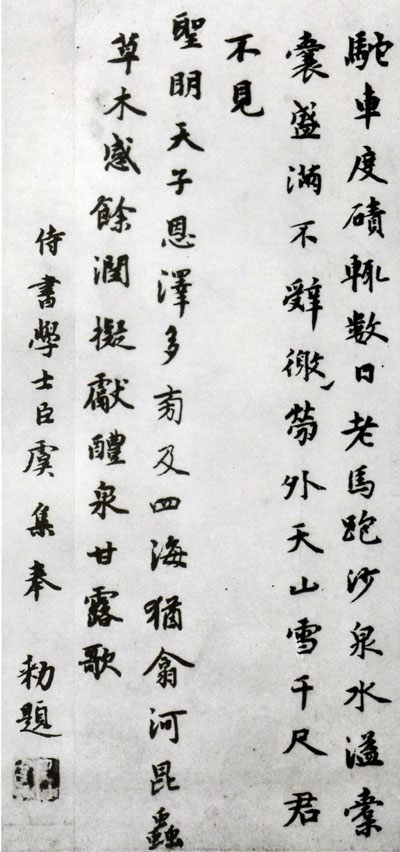 駞車度磧輙數日老馬跑沙泉水溢橐
囊盛滿不辤徼勞外天山雪千尺君
不見
聖明天子恩澤多旁及四海猶翕河昆蟲
草木感餘潤擬獻醴泉甘露歌
侍書學士臣虞集奉 勑題